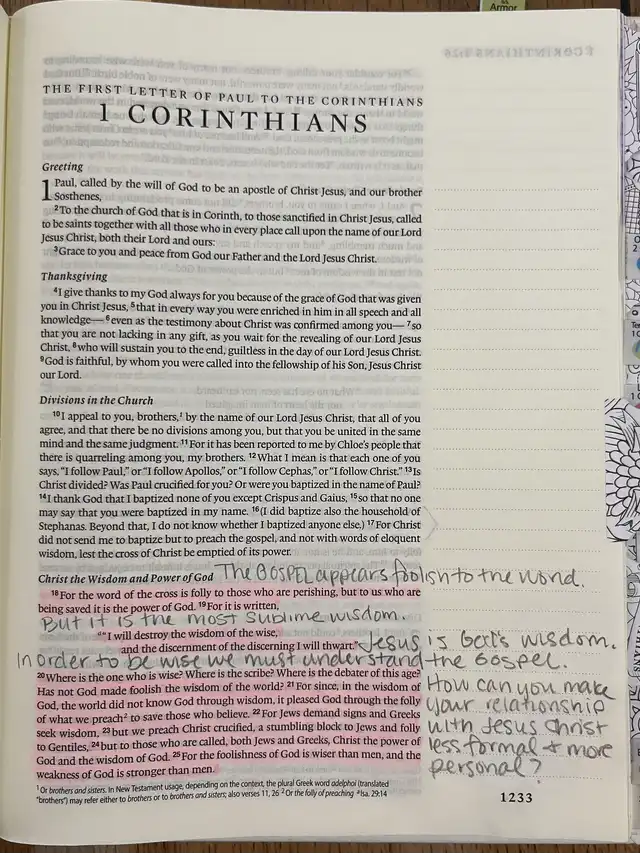 Armor
1 CORINTHIANS 1:26
THE FIRST LETTER OF PAUL TO THE CORINTHIANS
1 CORINTHIANS
Greeting
1 Paul, called by the will of God to be an apostle of Christ Jesus, and our brother
Sosthenes,
2To the church of God that is in Corinth, to those sanctified in Christ Jesus, called
to be saints together with all those who in every place call upon the name of our Lord
Jesus Christ, both their Lord and ours:
3Grace to you and peace from God our Father and the Lord Jesus Christ.
Thanksgiving
4I give thanks to my God always for you because of the grace of God that was given
you in Christ Jesus, 5that in every way you were enriched in him in all speech and all
knowledge— 6even as the testimony about Christ was confirmed among you— 7so
that you are not lacking in any gift, as you wait for the revealing of our Lord Jesus
Christ, 8who will sustain you to the end, guiltless in the day of our Lord Jesus Christ.
9God is faithful, by whom you were called into the fellowship of his Son, Jesus Christ
our Lord.
Divisions in the Church
10I appeal to you, brothers,1 by the name of our Lord Jesus Christ, that all of you
agree, and that there be no divisions among you, but that you be united in the same
mind and the same judgment. 11For it has been reported to me by Chloe's people that
there is quarreling among you, my brothers. 12What I mean is that each one of you
says, "I follow Paul," or "I follow Apollos," or "I follow Cephas," or "I follow Christ." 13Is
Christ divided? Was Paul crucified for you? Or were you baptized in the name of Paul?
14I thank God that I baptized none of you except Crispus and Gaius, 15so that no one
may say that you were baptized in my name. 16(I did baptize also the household of
Stephanas. Beyond that, I do not know whether I baptized anyone else.) 17For Christ
did not send me to baptize but to preach the gospel, and not with words of eloquent
wisdom, lest the cross of Christ be emptied of its power.
Christ the Wisdom and Power of God The GOSPEL appears foolish to the world.
18For the word of the cross is folly to those who are perishing, but to us who are
being saved it is the power of God. 19For it is written,
But it is the most sublime wisdom.
"I will destroy the wisdom of the wise,
and the discernment of the discerning I will thwart." Jesus is God's wisdom.
In order to be wise we must understand the Gospel.
20Where is the one who is wise? Where is the scribe? Where is the debater of this age?
Has not God made foolish the wisdom of the world? 21For since, in the wisdom of
God, the world did not know God through wisdom, it pleased God through the folly
of what we preach2 to save those who believe. 22For Jews demand signs and Greeks
seek wisdom, 23but we preach Christ crucified, a stumbling block to Jews and folly
to Gentiles, 24but to those who are called, both Jews and Greeks, Christ the power of
God and the wisdom of God. 25For the foolishness of God is wiser than men, and the
weakness of God is stronger than men.
How can you make
your relationship
with Jesus Christ
less formal + more
personal?
1 Or brothers and sisters. In New Testament usage, depending on the context, the plural Greek word adelphoi (translated
"brothers") may refer either to brothers or to brothers and sisters; also verses 11, 26 2 Or the folly of preaching a Isa. 29:14
1233